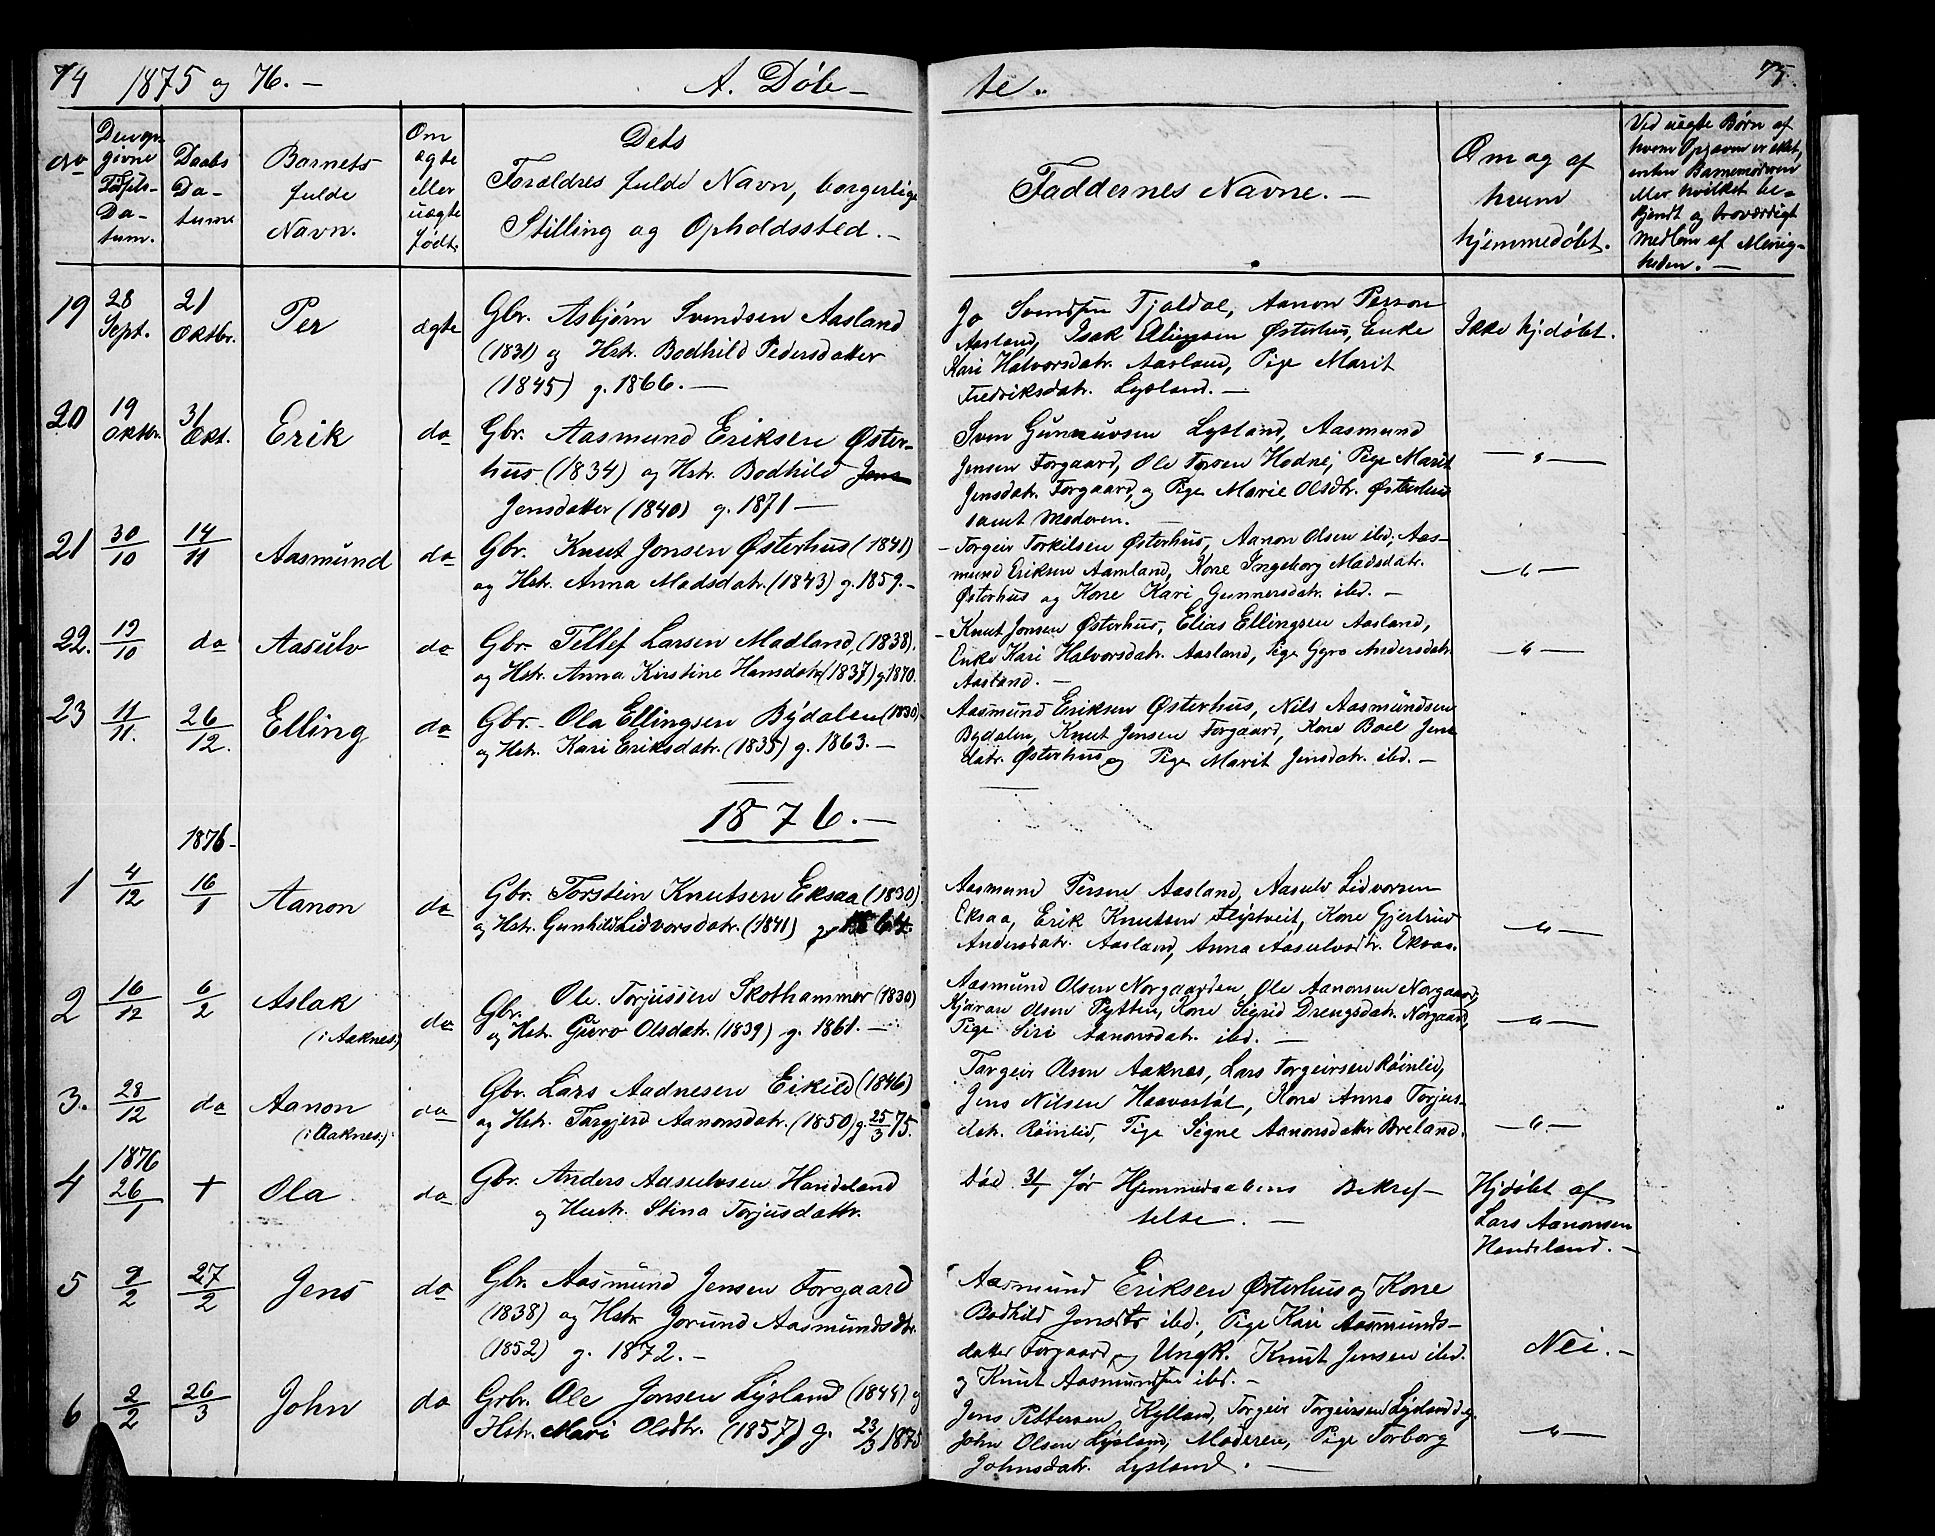 74 1875 og 76. — A. Døb—
te. 75.
No
Den op-
givne
Fødsels-
Da-
tum.
Daabs
Da-
tum
Barnets
fulde
Navn.
Om
ægte
eller
uægte
født.
Dets
Forældres fulde Navn, borgerlige
Stilling og Opholdssted. —
Faddernes Navne. —
Om og af
hvem
hjemmedøbt.
Ved uægte Børn af
hvem Opgaven er sket,
enten Barnemoderen
eller hvilket be-
kjendt og troværdigt
Medlem af Menig-
heden. —
19 28 Sept. 21 Oktbr. Per ægte
Gbr. Asbjørn Svendsen Aasland
(1831) og Hst. Bodhild Pedersdatter
(1845) g. 1866. —
Jo Svendsen Fjaldal, Aanon Persson
Aasland, Isak Østerhus, Enke
Kari Halvorsdatr. Aasland, Pige Marit
Fredriksdatr. Lysland. —
Ikke hjdøbt.
20 19 Oktbr. 31 Okt. Erik do
Gbr. Aasmund Eriksen Øster-
hus (1834) og Hstr. Bodhild Jens
Jensdatter (1840) g. 1871 —
Sven Gunnuvsen Lysland, Aasmund
Jensen Forgaard, Ole Torsen Hodne, Pige Marit
Jensdatr. Forgaard, og Pige Marie Olsdtr. Østerhus
samt Moderen. —
— " —
21 30/10 14/11 Aasmund do
Gbr. Knut Jonsen Østerhus (1841)
og Hstr. Anna Madsdatr. (1843) g. 1859. —
— Torgeir Torkilsen Østerhus, Aanon Olsen ibd, Aas-
mund Eriksen Aamland, Kone Ingeborg Madsdatr.
Østerhus og Kone Kari Gunnersdatr. ibd. —
— " —
22. 19/10 do Aasulv do
Gbr. Tellef Larsen Madland, (1838)
og Hstr. Anna Kirstine Hansdatr (1837) g 1870.
— Knut Jonsen Østerhus, Elias Ellingsen Aasland,
Enke Kari Halvorsdatr. Aasland, Pige Gyro Andersdatr.
Aasland. —
— " —
23 11/11. 26/12. Elling do
Gbr. Ola Ellingsen Bydalen (1830)
og Hstr. Kari Eriksdatr. (1835) g. 1863. —
Aasmund Eriksen Østerhus, Nils Aasmundsen
Bydalen, Knut Jensen Forgaard, Kone Boel Jens
datr. Østerhus og Pige Marit Jensdatr. ibd. —
1876. —
1876—
1 4/12 16/1 Aanon do
Gbr. Torstein Knutsen Eksaa (1830)
og Hstr. Gunhild Lidvorsdatr. (1841) g 1864
Aasmund Persen Aasland, Aasulv Lidvorsen
Eksaa, Erik Knutsen Fløstveit, Kone Gjertrud
Andersdatr. Aasland, Anna Aasulvsdtr. Eksaa.
— " —
2 16/12 6/2 Aslak
(i Aaknes.) do
Gbr. Ole Torjussen Skothammer (1830)
og Hstr. Guro Olsdatr. (1839) g. 1861. —
Aasmund Olsen Norgaarden, Ole Aanonsen Norgaard,
Kjøran Olsen Pytten, Kone Sigrid Drengsdatr. Norgaard,
Pige Siri Aanonsdatr. ibd. —
— " —
3. 28/12 do Aanon
(i Aaknes.) do
Gbr. Lars Aadnesen Eikild (1846)
og Hstr. Targjerd Aanonsdatr. (1850) g. 25/3 75.
Targeir Olsen Aaknes, Lars Torgeirsen Røinlid,
Jens Nilsen Haavorstøl, Kone Anna Torjus-
datr. Røinlid, Pige Signe Aanonsdatter Breland.
— " —
1876
4 26/1 + Ola do
Gbr. Anders Aasulvsen Handeland
og Hustr. Stina Torjusdattr.
Død 31/1 før Hjemmedaabens Bekref—
telse. —
Hjdøbt af
Lars Aanonsen
Handeland. —
5 9/2 27/2 Jens do
Gbr. Aasmund Jensen Forgaard
(1838) og Hstr Jorund Aasmundsdtr.
(1852) g. 1872. —
Aasmund Eriksen Østerhus og Kone
Bodhild Jensdtr ibd., Pige Kari Aasmunds—
datter Forgaard, og Ungk. Knut Jensen ibd.
og Knut Aasmundsen ibd. —
Nei. —
6 2/2 26/3 John do
Grbr. Ole Jonsen Lysland (1844) g
Hstr. Mari Olsdtr. (1857) g. 23/3 1875
Jens Pettersen Kylland, Torgeir Torgeirsen Lysland d.y.
John Olsen Lysland, Moderen, Pige Torborg
Johnsdatr. Lysland. —
— " —